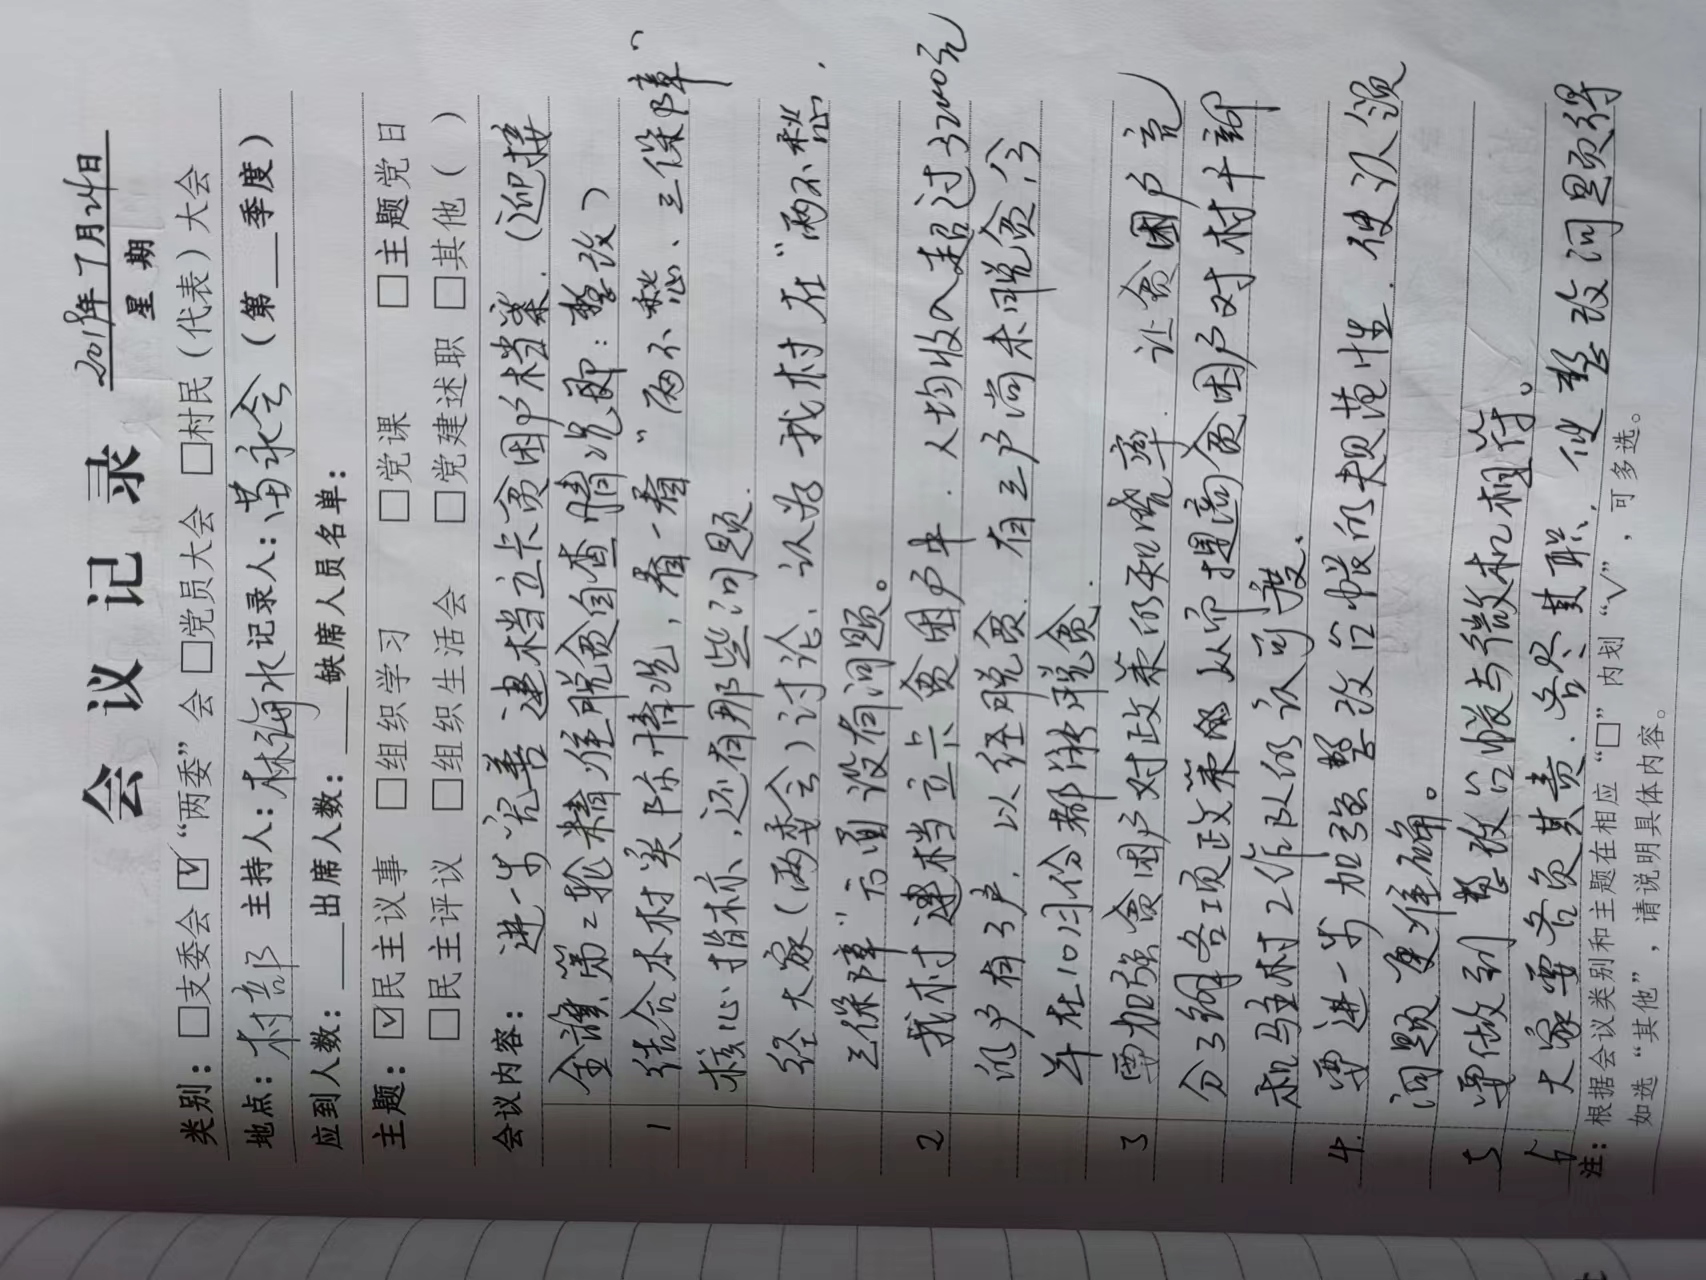 会议记录
2019年7月24日
星期
类别：□支委会 ☑“两委”会 □党员大会 □村民（代表）大会
地点：村部 主持人：林海水 记录人：苗永会（第__季度）
应到人数：___出席人数：___缺席人员名单：
主题：☑民主议事 □组织学习 □党课 □主题党日
□民主评议 □组织生活会 □党建述职 □其他（ ）
会议内容：进一步完善建档立卡贫困户档案.（迎接
全旗第二轮精准脱贫自查情况即：整改）
1 结合本村实际情况，看一看“两不愁、三保障”
核心指标，还有那些问题.
经大家（两委会）讨论、认为我村在“两不愁.
三保障”方面没有问题。
2 我村建档立卡贫困户中.人均收入超过3200元
的户有3户.以经脱贫.有三户尚未脱贫，今
年在10月份都能脱贫.
3 要加强贫困户对政策的知晓率.让贫困户充
分了解各项政策从而提高贫困户对村干部
和驻村工作队的认可度.
4. 要进一步加强整改台帐的规范性.使认领
问题更准确。
5 要做到整改台帐与微机相符。
6 大家要各负其责.各尽其职.使整改问题得
注：根据会议类别和主题在相应“□”内划“√”，可多选。
如选“其他”，请说明具体内容。